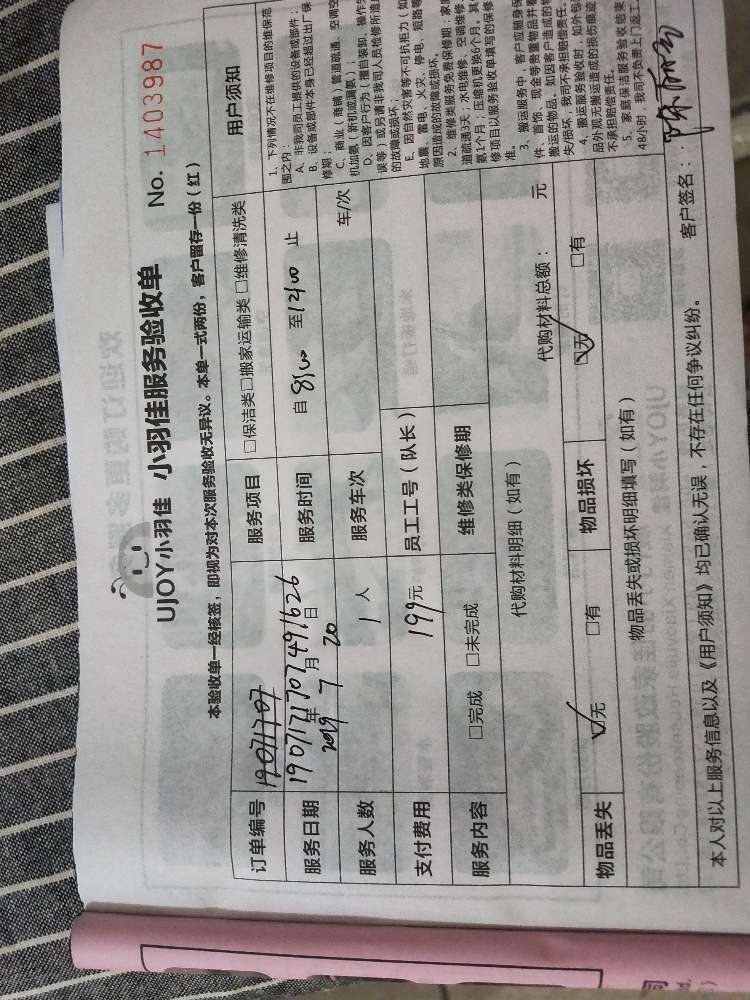 UJOY小羽佳 小羽佳服务验收单 No. 1403987
本验收单一经核签，即视为对本次服务验收无异议。本单一式两份，客户留存一份（红）
订单编号 19071707
1907171707491626
服务项目 □保洁类□搬家运输类□维修清洗类
服务日期 2019年7月20日
服务时间 自 8:00 至12:00 止
服务人数 1人
服务车次 车/次
支付费用 199元
员工工号（队长）
服务内容 □完成 □未完成
维修类保修期
代购材料明细（如有）
代购材料总额： 元
物品丢失 ☑无 □有
物品损坏 ☑无 □有
物品丢失或损坏明细填写（如有）
本人对以上服务信息以及《用户须知》均已确认无误，不存在任何争议纠纷。 客户签名：
用户须知
1、下列情况不在维修项目的维保范
围之内：
A、非我司员工提供的设备或部件；
B、设备或部件本身已经超过出厂保
修期；
C、商业（商铺）管道疏通、空调空
机加氨（新机或漏氨）
D、因客户行为（擅自装卸、操作失
误等）或另请非我司人员检修所造
的故障或损坏；
E、因自然灾害等不可抗拒力（如
地震、雷电、火灾、停电、短路等
原因造成的故障或损坏。
2、维修类服务免费保修期：家
道疏通3天；水电维修、空调维修
氨1个月；压缩机更换6个月。其
修项目以服务验收单填写的保修
准。
3、搬运服务中，客户应随身保
件、首饰、现金等贵重物品并看
搬运的物品，如因客户造成的物
失/损坏，我司不承担赔偿责任。
4、搬运服务验收时，如外包
品外观无搬运造成的损伤痕迹
不承担赔偿责任。
5、家庭保洁服务验收结束
48小时，我司不负责上门返工